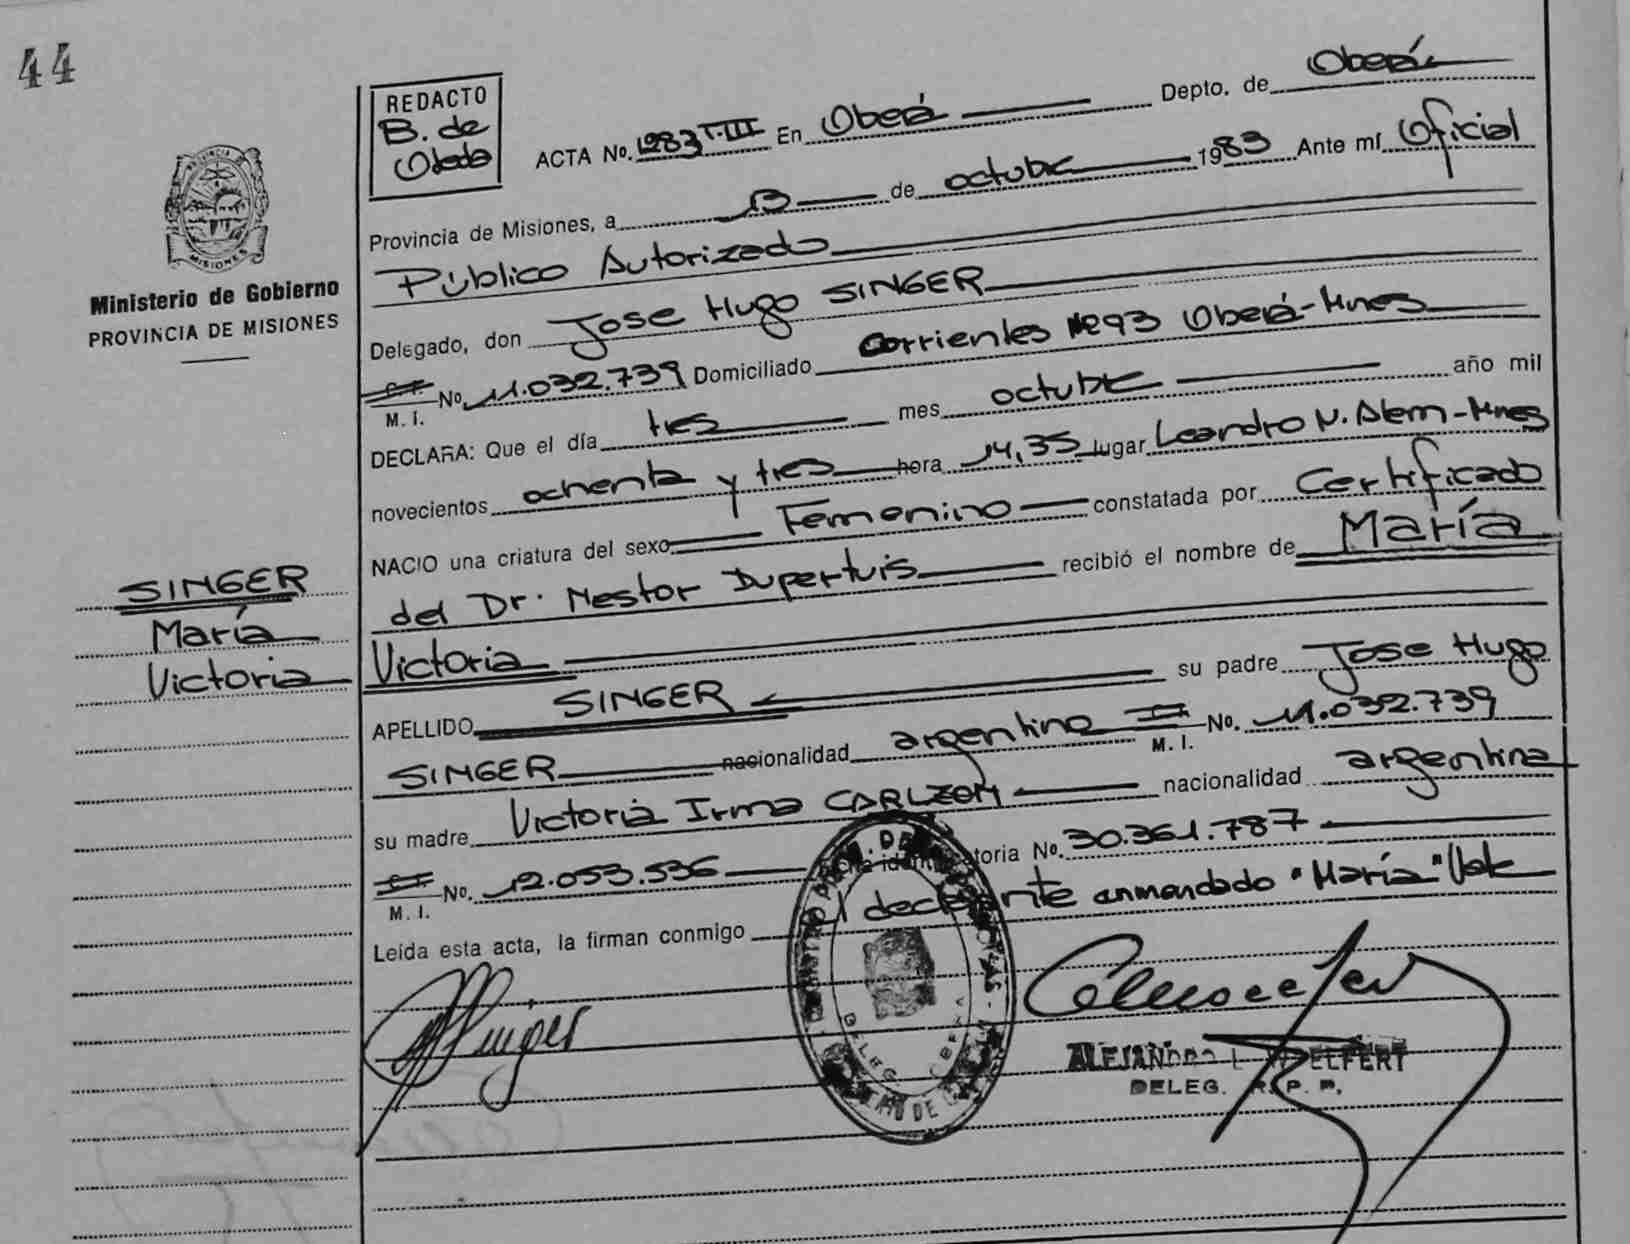 44
REDACTO
B. de
Oleda
ACTA No. 1283 T-III En Oberá Depto. de Oberá
Provincia de Misiones, a 13 de octubre 1983 Ante mí Oficial
Público Autorizado
Delegado, don Jose Hugo SINGER
No. 11.032.739 Domiciliado Corrientes Nº293 Oberá-Mnes
M. I.
DECLARA: Que el día tres mes octubre año mil
novecientos ochenta y tres hora 14,35 lugar Leandro N. Alem-Mnes
NACIO una criatura del sexo Femenino constatada por Certificado
del Dr. Nestor Dupertuis recibió el nombre de María
Victoria
APELLIDO SINGER su padre Jose Hugo
SINGER nacionalidad argentina M. I. No. 11.032.739
su madre Victoria Irma CARLZON nacionalidad argentina
No. 12.053.536 toria No. 30.361.787
M. I.
Leída esta acta, la firman conmigo el declarante enmendado "María" Vale
MISIONES
Ministerio de Gobierno
PROVINCIA DE MISIONES
SINGER
María
Victoria
DELEG. R. P. P.